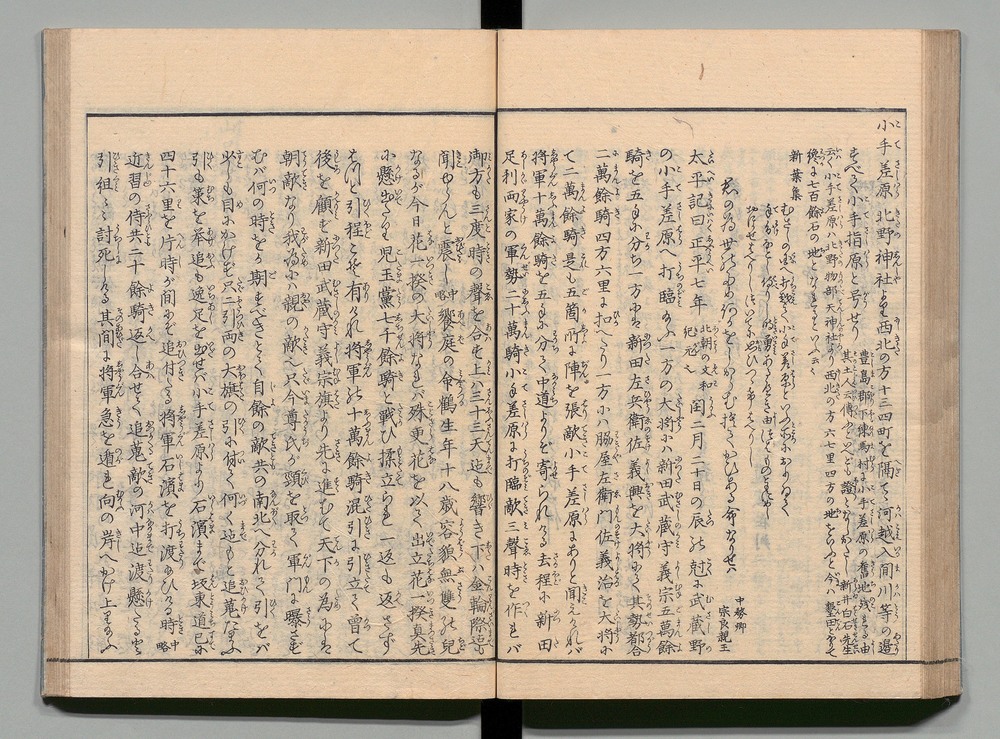 小手差原 北野神社より西北の方十三四町を隔て河越入間川等の邊
すべて小手指原と号せり
豊島郡下練馬村に小手差原の舊地残れる由
其土人云傳ふといへども證なし
新井白石先生
云小手差原ハ北野物部天神社より西北の方六七里四方の地をゐふと今ハ墾田となて
後に七百餘石の地となるといふ云々
新葉集
君の為世の為何かをしからむ捨てかひある命なりせハ
中務卿
宗良親王
太平記曰正平七年
北朝の文和
紀元也
閏二月二十日の辰の尅に武蔵野
の小手差原へ打臨給ふ一方の大将にハ新田武蔵守義宗五萬餘
騎を五手に分ち一方にハ新田左兵衛佐義興を大将にて其勢都合
二萬餘騎四方六里に扣へたり一方にハ脇屋左衛門佐義治を大将に
て二萬餘騎是も五箇所に陣を張敵小手差原にありと聞えけれバ
将軍十萬餘騎を五手に分て中道よりぞ寄られける去程に新田
足利両家の軍勢二十萬騎小手差原に打臨敵三聲時を作れバ
御方も三度時の聲を合せ上ハ三十三天迄も響き下ハ金輪際迄も
聞ゆらんと震し
中略
饗庭の命鶴生年十八歳容貌無雙の兒
なるが今日花一揆の大将なれバ殊更花を以て出立花一揆真先
に懸出たり児玉黨七千餘騎と戦ひ揉立られ一返も返さず
はつと引程こそ有けれ将軍の十萬餘騎混引に引立て曽て
後を顧ず新田武蔵守義宗旗より先に進むて天下の為にハ
朝敵なり我為にハ親の敵也只今尊氏が頸を取て軍門に曝さず
むバ何の時をか期すべきとて自餘の敵共の南北へ分れて引をバ
少しも目にかけず只二引両の大旗の引に付て何く迄もと追蒐給ふ
引も策を挙追も逸足を出せバ小手差原より石濱まで坂東道已に
四十六里を片時が間にぞ追付たる将軍石濱を打渡給ひける時
中略
近習の侍共二十餘騎返し合せて追蒐敵の河中迄渡懸たると
引組々々討死しける其間に将軍急を遁れ向の岸へかけ上り給ふ